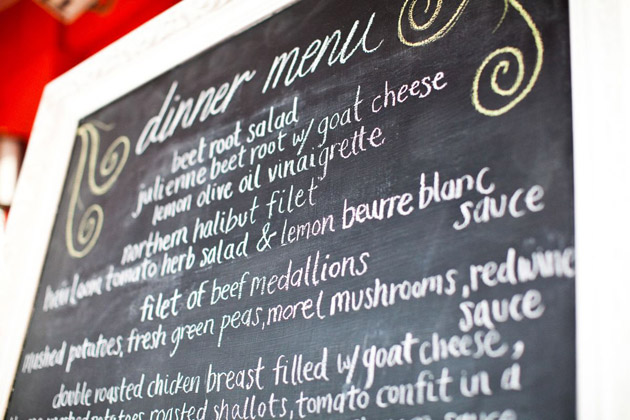 dinner menu
beet root salad
julienne beet root w/ goat cheese
lemon olive oil vinaigrette
northern halibut filet
heirloom tomato herb salad & lemon beurre blanc
sauce
filet of beef medallions
mashed potatoes, fresh green peas, morel mushrooms, red wine
sauce
double roasted chicken breast filled w/ goat cheese,
mashed potatoes, roasted shallots, tomato confit in a
sauce